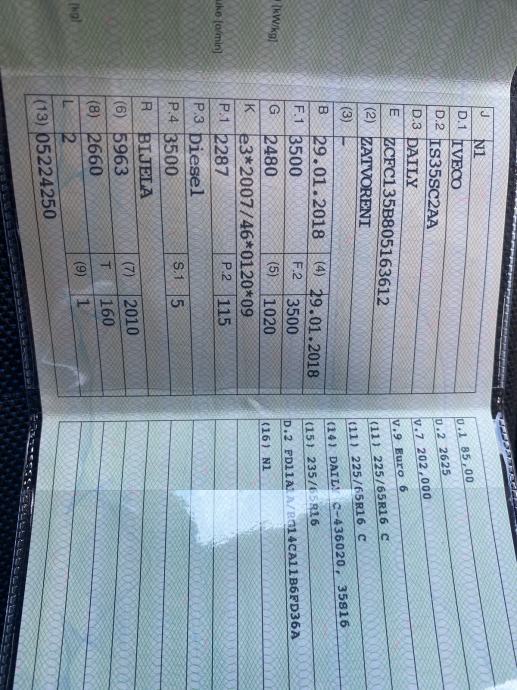 [kW/kg]
[o/min]
[kg]
J N1
D.1 IVECO
D.2 IS35SC2AA
D.3 DAILY
E ZCFC135B805163612
(2) ZATVORENI
(3) -
B 29.01.2018 (4) 29.01.2018
F.1 3500 F.2 3500
G 2480 (5) 1020
K e3*2007/46*0120*09
P.1 2287 P.2 115
P.3 Diesel
P.4 3500 S.1 5
R BIJELA
(6) 5963 (7) 2010
(8) 2660 T 160
L 2 (9) 1
(13) 05224250
U.1 85,00
U.2 2625
V.7 202,000
V.9 Euro 6
(11) 225/65R16 C
(11) 225/65R16 C
(14) DAILY C-436020, 35S16
(15) 235/65R16
(16) N1